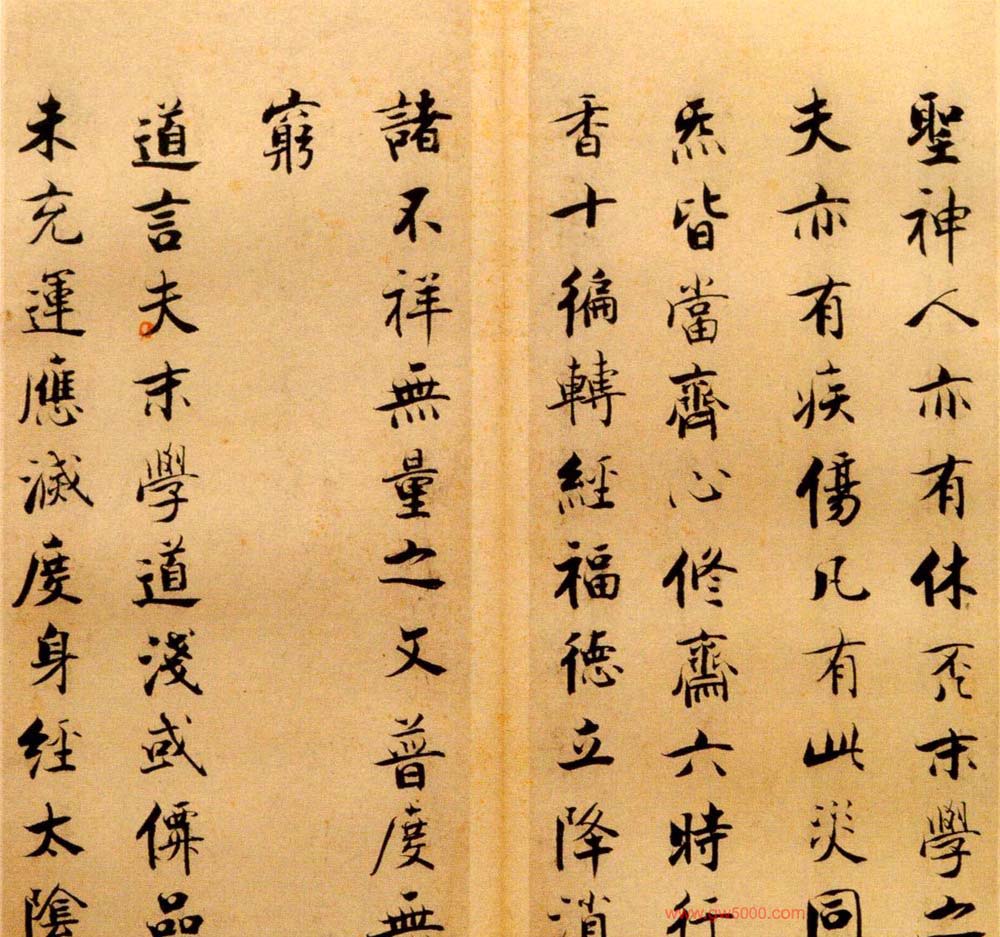 聖神人亦有休否末學之
夫亦有疾傷凡有此災同
炁皆當齊心修齋六時行
香十徧轉經福德立降消
諸不祥無量之文普度無
窮
道言夫末學道淺或僊品
未充運應滅度身經太陰
www.gw5000.com